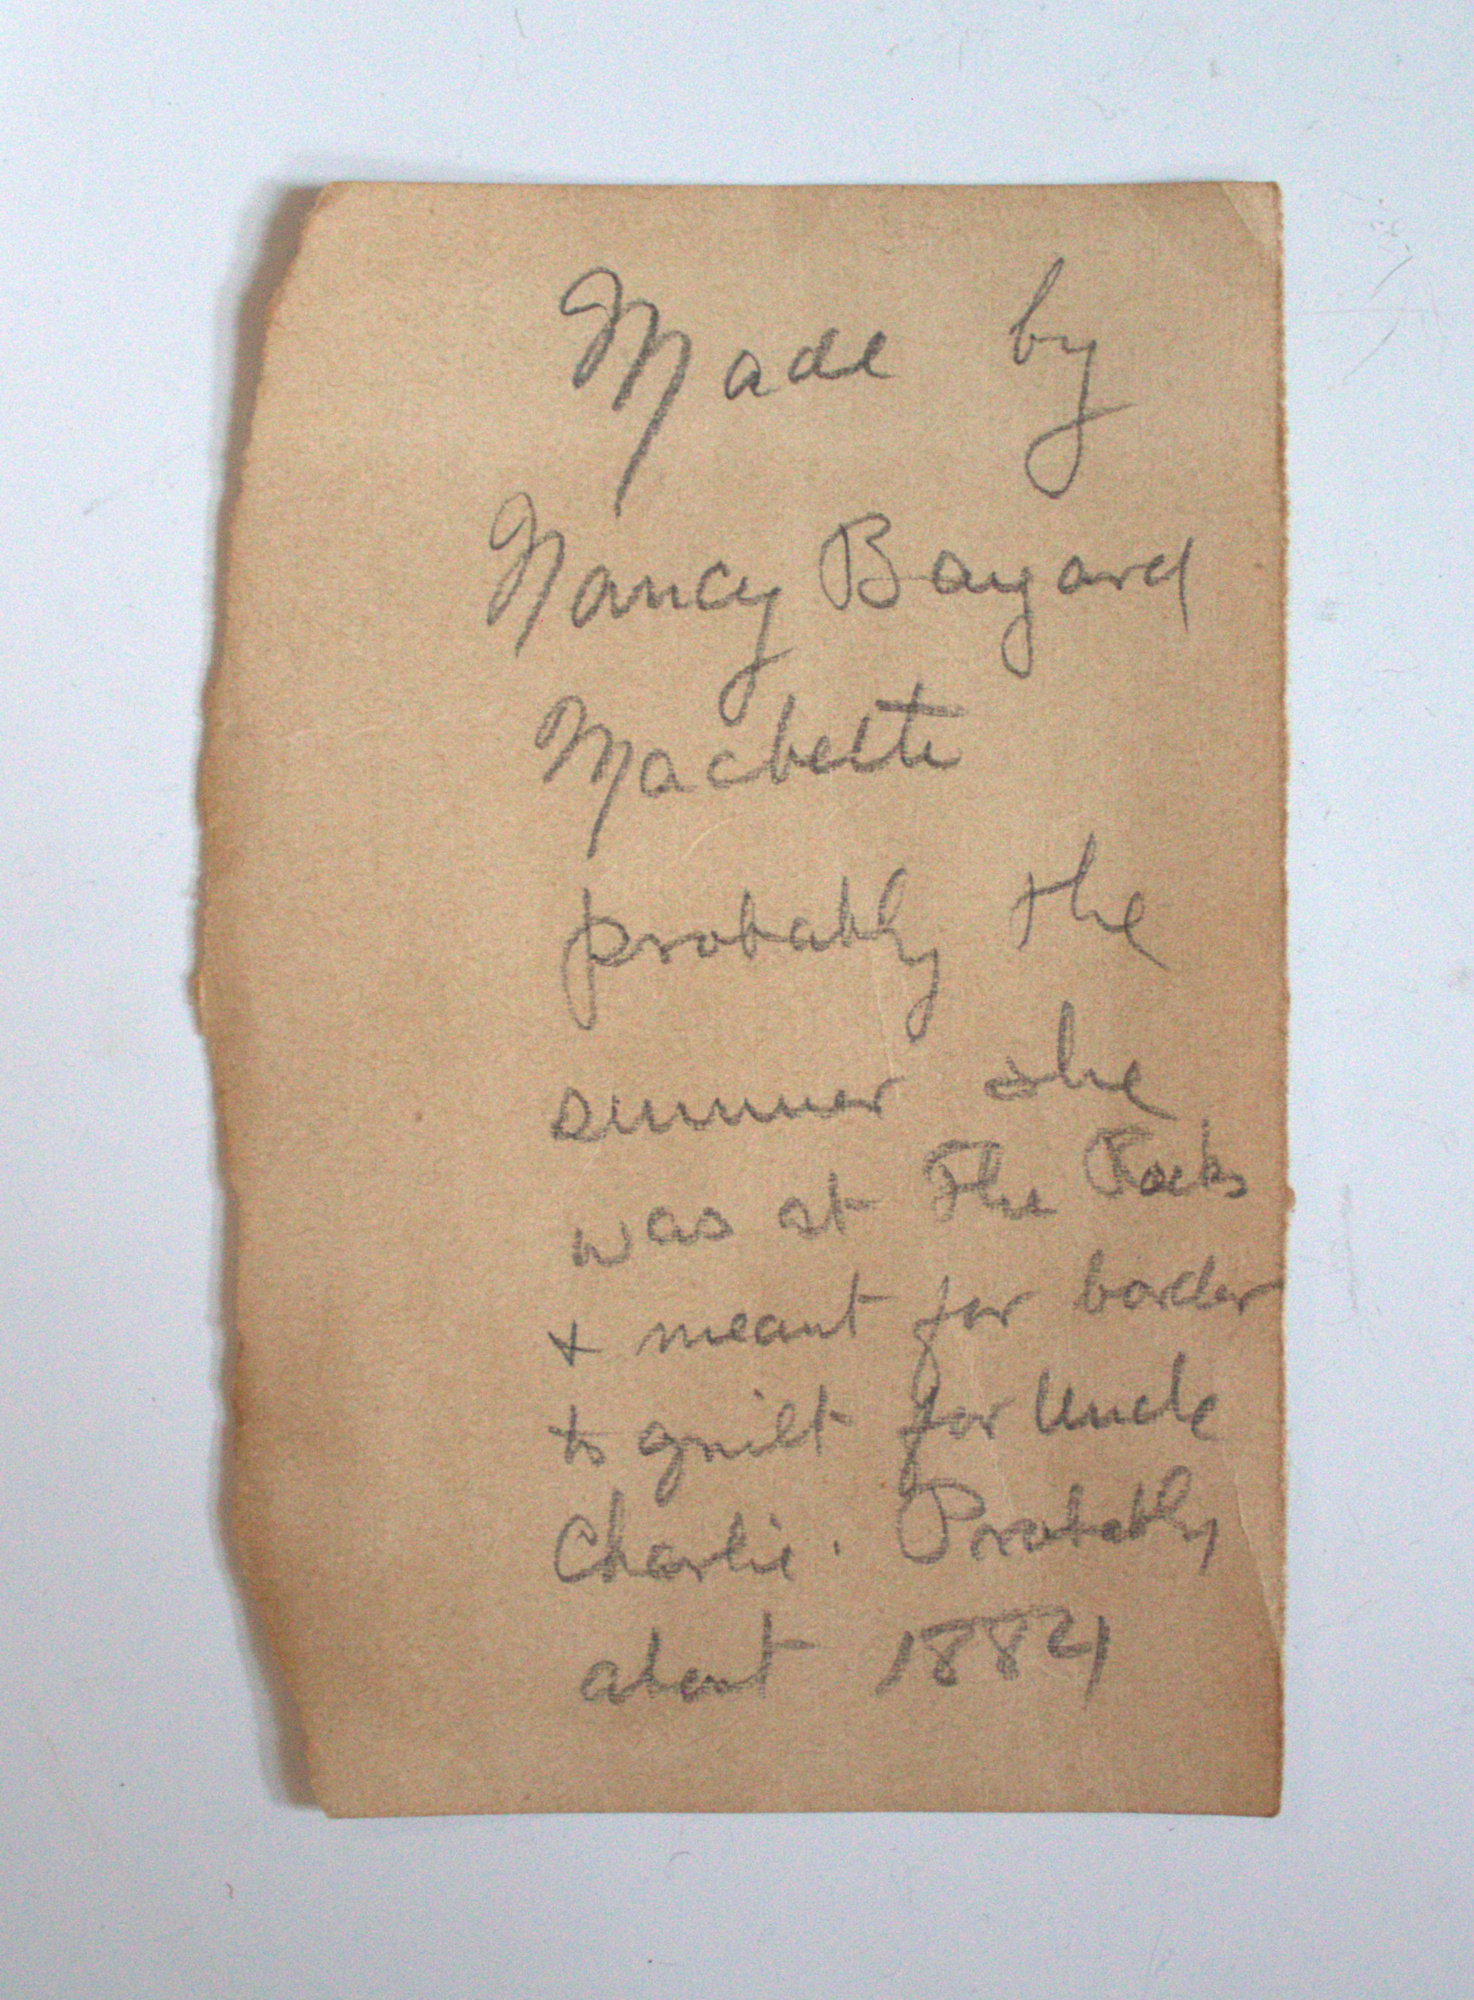 Made by
Nancy Bayard
Macbette
probably the
summer she
was at The Rocks
+ meant for border
to quilt for Uncle
Charlie. Probably
about 1884